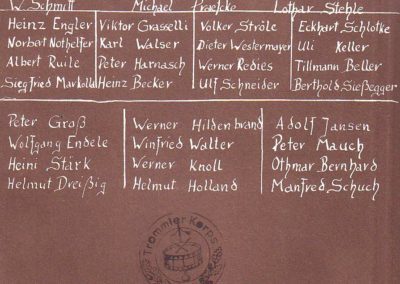 W. Schmitt Michael Praefcke Lothar Stehle
Heinz Engler Viktor Grasselli Volker Ströle Eckhart Schlotke
Norbert Nothelfer Karl Walser Dieter Westermayer Uli Keller
Albert Ruile Peter Harnasch Werner Redies Tillmann Beller
Siegfried Markolla Heinz Becker Ulf Schneider Berthold Sießegger
Peter Groß Werner Hildenbrand Adolf Jansen
Wolfgang Endele Winfried Walter Peter Mauch
Heini Stark Werner Knoll Othmar Bernhard
Helmut Dreißig Helmut Holland Manfred Schuch
Trommler Korps